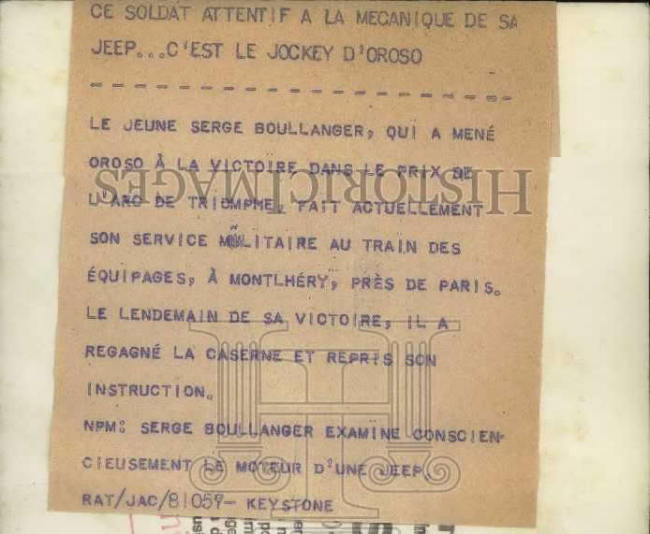 CE SOLDAT ATTENTIF A LA MECANIQUE DE SA
JEEP...C'EST LE JOCKEY D'OROSO
LE JEUNE SERGE BOULLANGER, QUI A MENÉ
OROSO À LA VICTOIRE DANS LE PRIX DE
L'ARC DE TRIOMPHE, FAIT ACTUELLEMENT
SON SERVICE MILITAIRE AU TRAIN DES
ÉQUIPAGES, À MONTLHÉRY, PRÈS DE PARIS.
LE LENDEMAIN DE SA VICTOIRE, IL A
REGAGNÉ LA CASERNE ET REPRIS SON
INSTRUCTION.
NPM: SERGE BOULLANGER EXAMINE CONSCIEN-
CIEUSEMENT LE MOTEUR D'UNE JEEP.
RAT/JAC/81059- KEYSTONE
HISTORICIMAGES